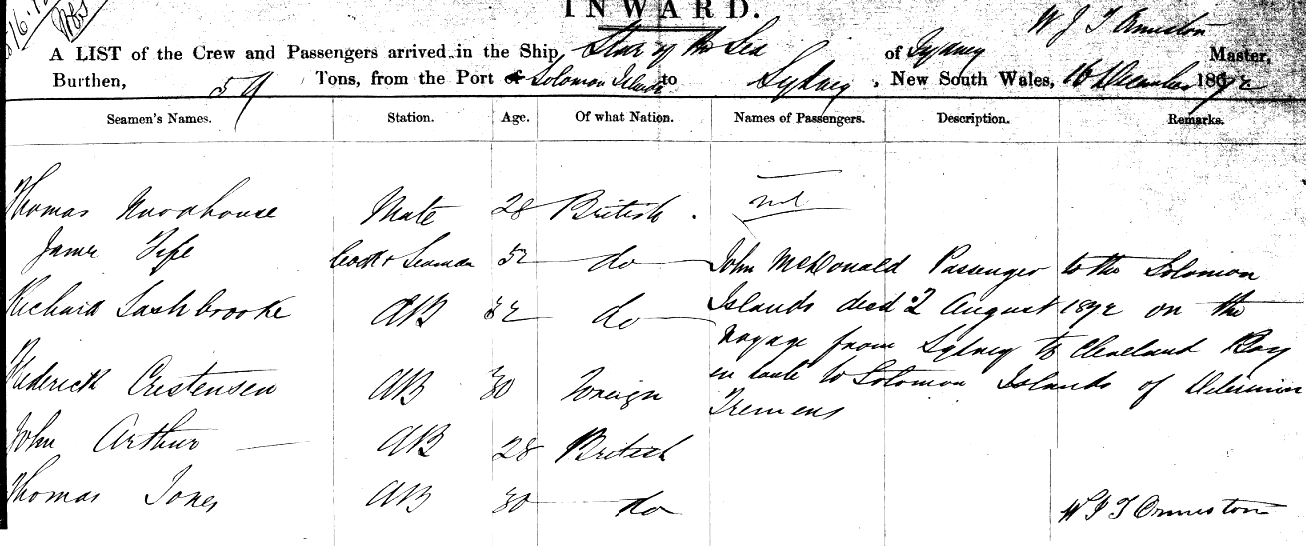 INWARD.
W J T Ormiston
A LIST of the Crew and Passengers arrived in the Ship, Star of the Sea of Sydney Master,
Burthen, 59 Tons, from the Port Solomon Islands to Sydney, New South Wales, 16 December 1872
Seamen's Names. Station. Age. Of what Nation. Names of Passengers. Description. Remarks.
Thomas Woodhouse Mate 28 British. nil
James Fife Cook & Seaman 52 do
Richard Lashbrooke AB 32 do
Frederick Cristensen AB 30 Foreign
John Arthur AB 28 British
Thomas Jones AB 30 do
John McDonald Passenger to the Solomon
Islands died 2 August 1872 on the
voyage from Sydney to Cleveland Bay
en route to Solomon Islands of Delirium
Tremens
W J T Ormiston